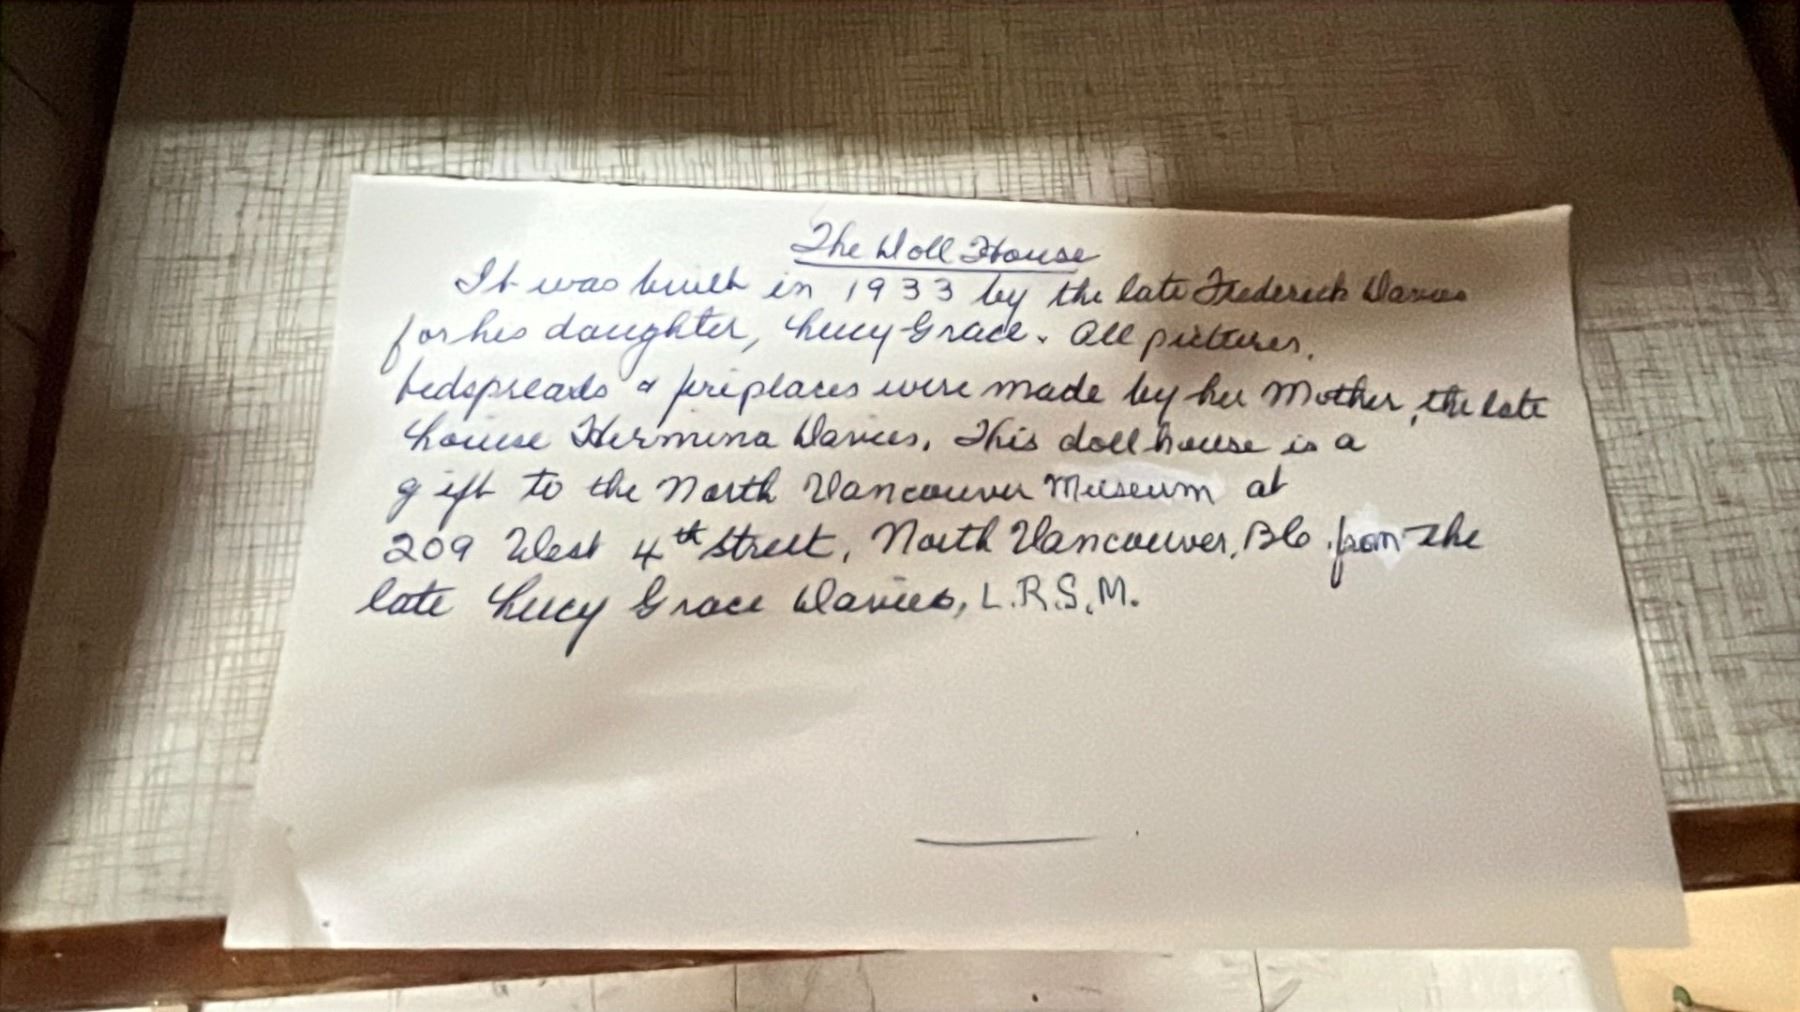 The Doll House
It was built in 1933 by the late Frederick Davies
for his daughter, Lucy Grace. All pictures,
bedspreads & fireplaces were made by her Mother, the late
Louise Hermina Davies. This doll house is a
gift to the North Vancouver Museum at
209 West 4th Street, North Vancouver, BC. from the
late Lucy Grace Davies, L.R.S.M.